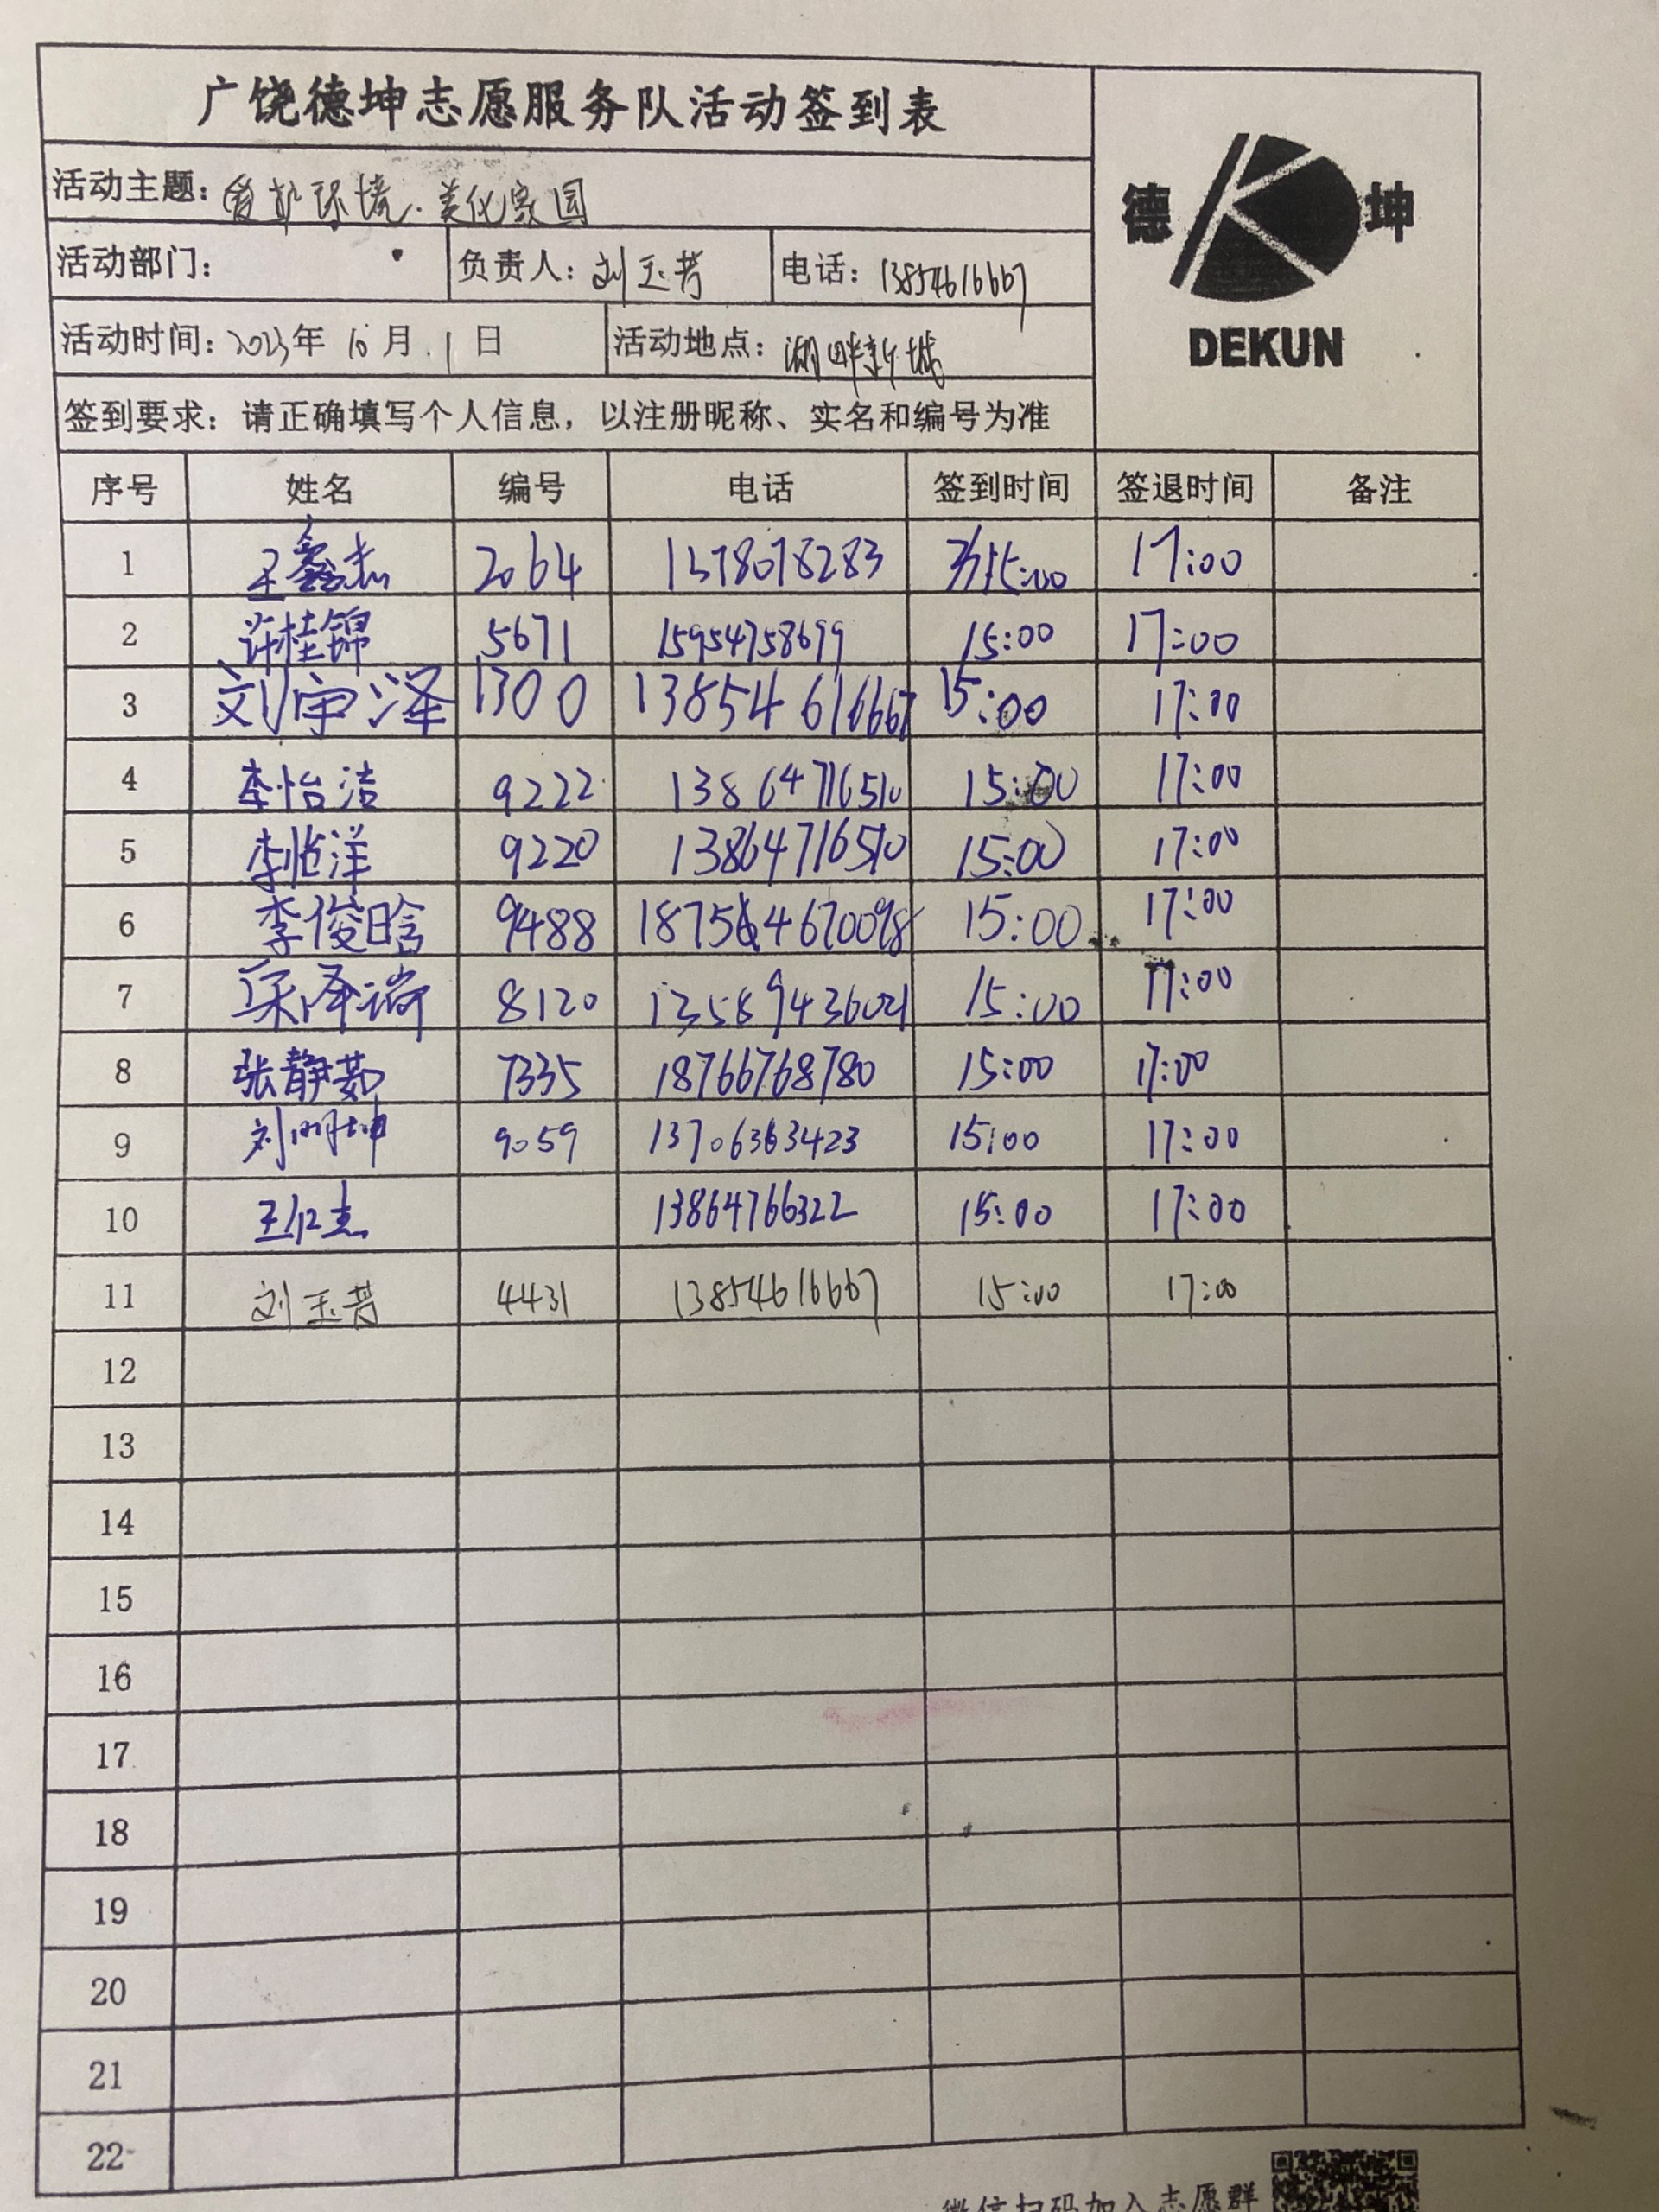 广饶德坤志愿服务队活动签到表
德 坤
DEKUN
活动主题：爱护环境.美化家园
活动部门： 负责人：刘玉芳 电话：13854616667
活动时间：2023年 10月 1 日 活动地点：湖畔新城
签到要求：请正确填写个人信息，以注册昵称、实名和编号为准
序号 姓名 编号 电话 签到时间 签退时间 备注
1 王鑫杰 2064 15:00 17:00
2 许桂锦 5671 15954758699 15:00 17:00
3 刘宇泽 1300 13854616667 15:00 17:00
4 李怡洁 9222 13864716510 15:00 17:00
5 李怡洋 9220 13864716510 15:00 17:00
6 李俊晗 9488 15:00 17:00
7 梁泽瑞 8120 13589436021 15:00 17:00
8 张静茹 7335 18766768780 15:00 17:00
9 刘明坤 9059 13706363423 15:00 17:00
10 王仁杰 13864766322 15:00 17:00
11 刘玉芳 4431 13854616667 15:00 17:00
12
13
14
15
16
17
18
19
20
21
22
微信扫码加入志愿群